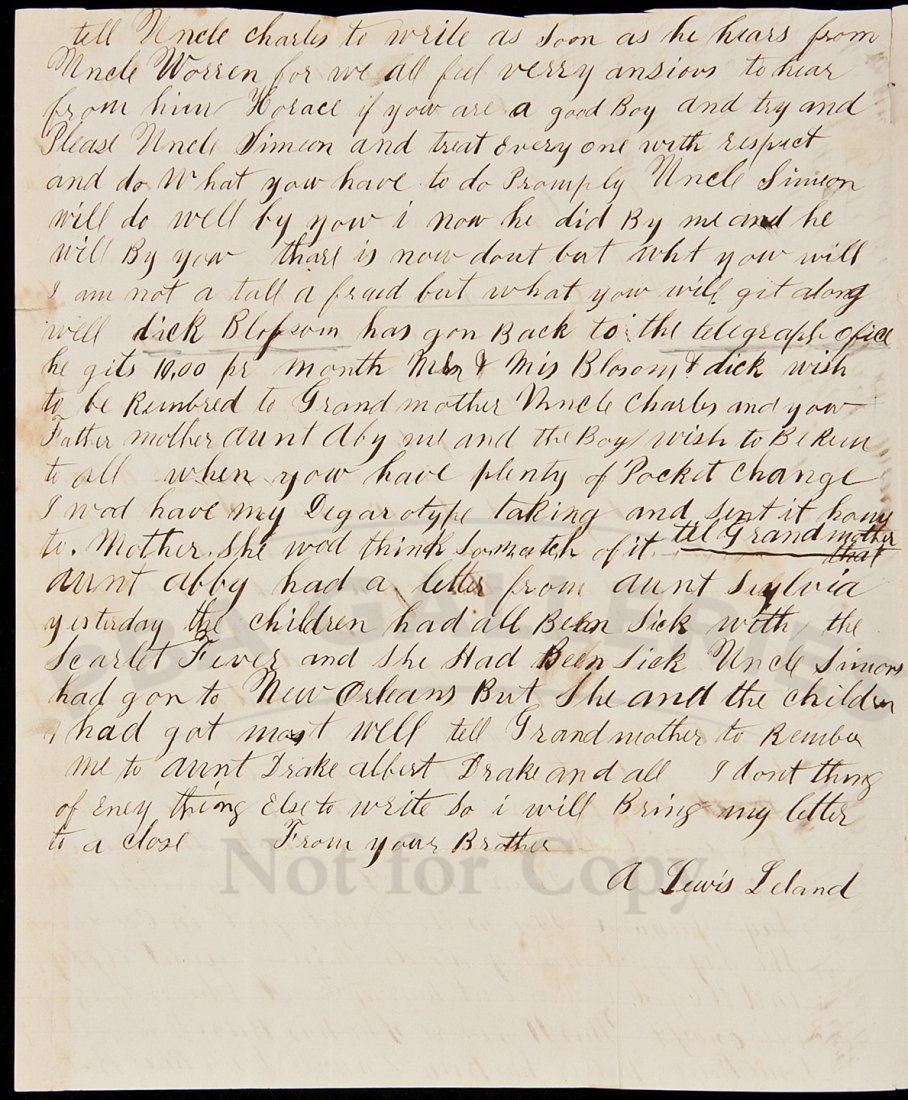 tell Uncle charles to write as soon as he hears from
Uncle Worren for we all feel verry ansious to hear
from him Horace if yow are a good Boy and try and
Please Uncle Simeon and treat Every one with respect
and do What yow have to do Promply Uncle Simeon
will do well by yow i now he did By me and he
will By yow thare is now dout but wht yow will
I am not a tall a fraid but what yow will git along
well dick Blossom has gon Back to the telegraph ofice
he gits 10,00 pr month Mr & Mis Blosom & dick wish
to be Rembred to Grand mother Uncle Charles and yow
Father mother aunt Aby me and the Boy wish to Be Rem
to all when yow have plenty of Pocket Change
I wod have my Degarotype taking and sent it home
to. Mother. She wod think so mutch of it tel Grand mother
that
aunt abby had a letter from aunt Sylvia
yesterday the children had all Been Sick with the
Scarlet Fever and she Had Been Sick Uncle Simons
had gon to New Orleans But She and the children
had got most well tell Grandmother to Rember
me to aunt Drake albert Drake and all I dont thing
of Eney thing Else to write So i will Bring my letter
to a close From your Brother
A Lewis Leland
PBA GALLERIES
Not for Copy